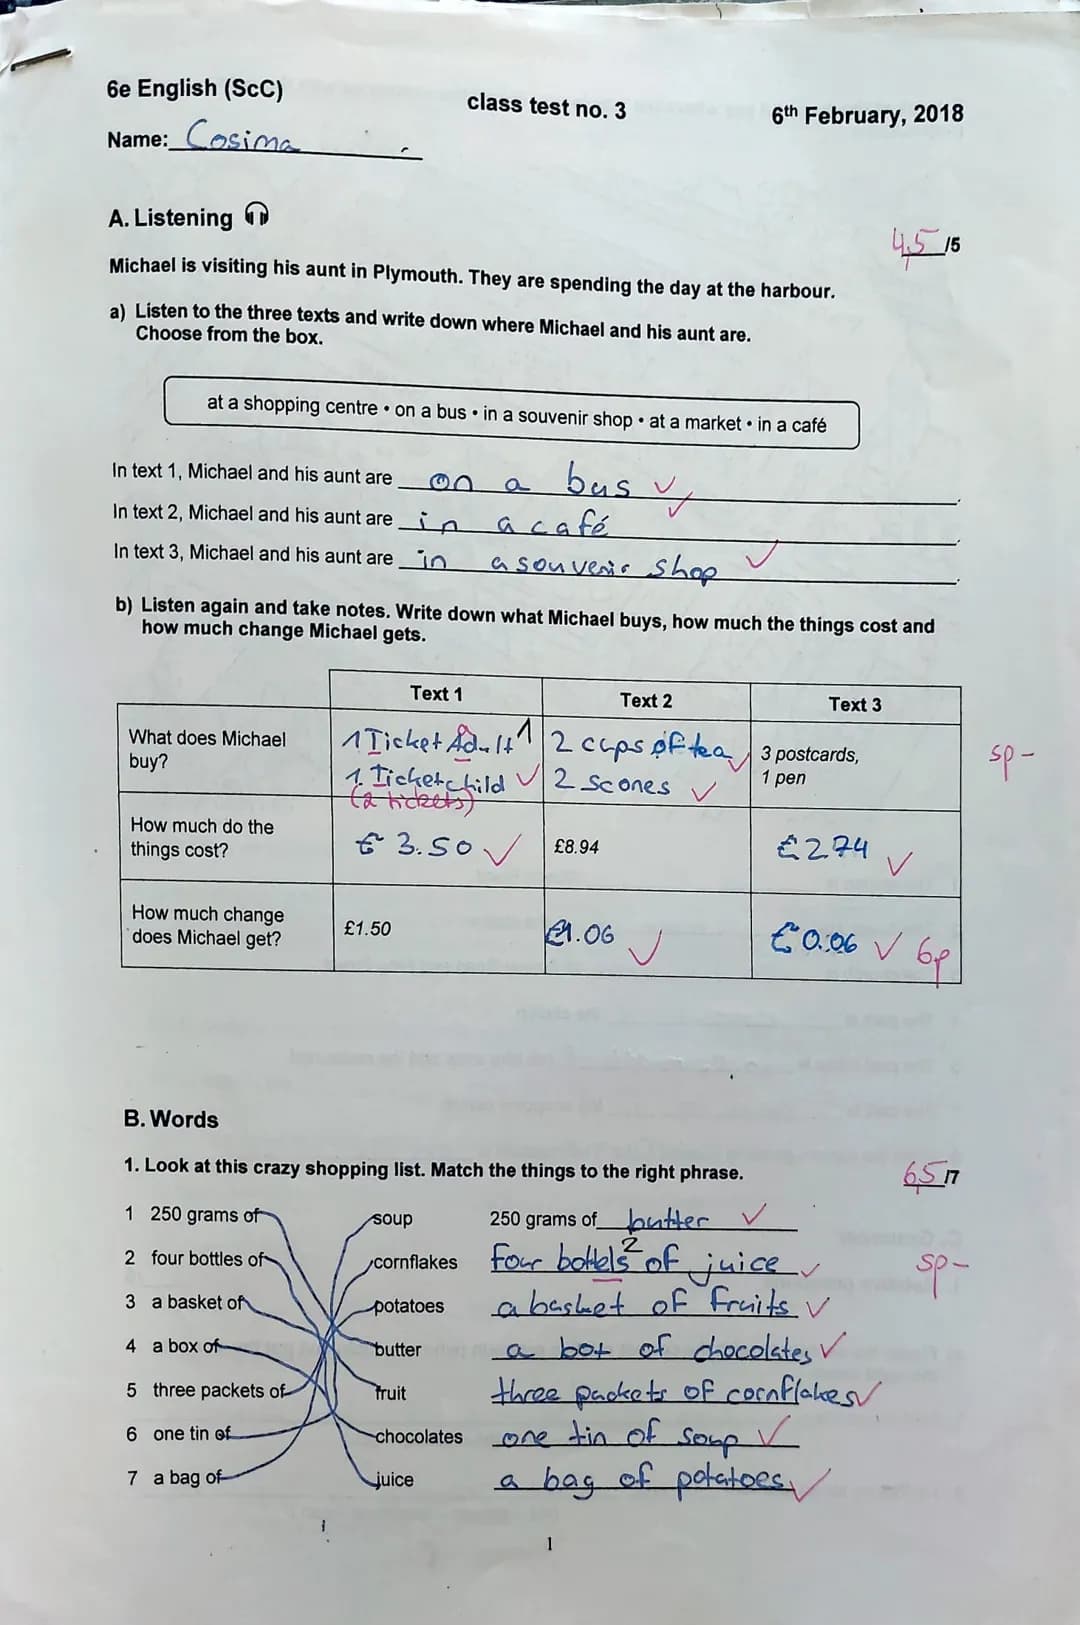 6e English (ScC) class test no. 3 6th February, 2018
Name: Cosima
A. Listening
4,5 /5
Michael is visiting his aunt in Plymouth. They are spending the day at the harbour.
a) Listen to the three texts and write down where Michael and his aunt are.
Choose from the box.
at a shopping centre • on a bus • in a souvenir shop • at a market • in a café
In text 1, Michael and his aunt are on a bus
In text 2, Michael and his aunt are in a café
In text 3, Michael and his aunt are in a souvenir shop
b) Listen again and take notes. Write down what Michael buys, how much the things cost and
how much change Michael gets.
Text 1 Text 2 Text 3
What does Michael buy?
1 Ticket Adult 1
1 Ticket child
(2 tickets)
2 cups of tea
2 scones
3 postcards,
1 pen
sp-
How much do the things cost?
€ 3.50 £8.94 £2.94
How much change does Michael get?
£1.50 £1.06 £0.06 6p
B. Words
1. Look at this crazy shopping list. Match the things to the right phrase. 6,5 /7
1 250 grams of soup 250 grams of butter
2 four bottles of cornflakes four bottels 2 of juice sp-
3 a basket of potatoes a basket of fruits
4 a box of butter a box of chocolates
5 three packets of fruit three packets of cornflakes
6 one tin of chocolates one tin of soup
7 a bag of juice a bag of potatoes
1